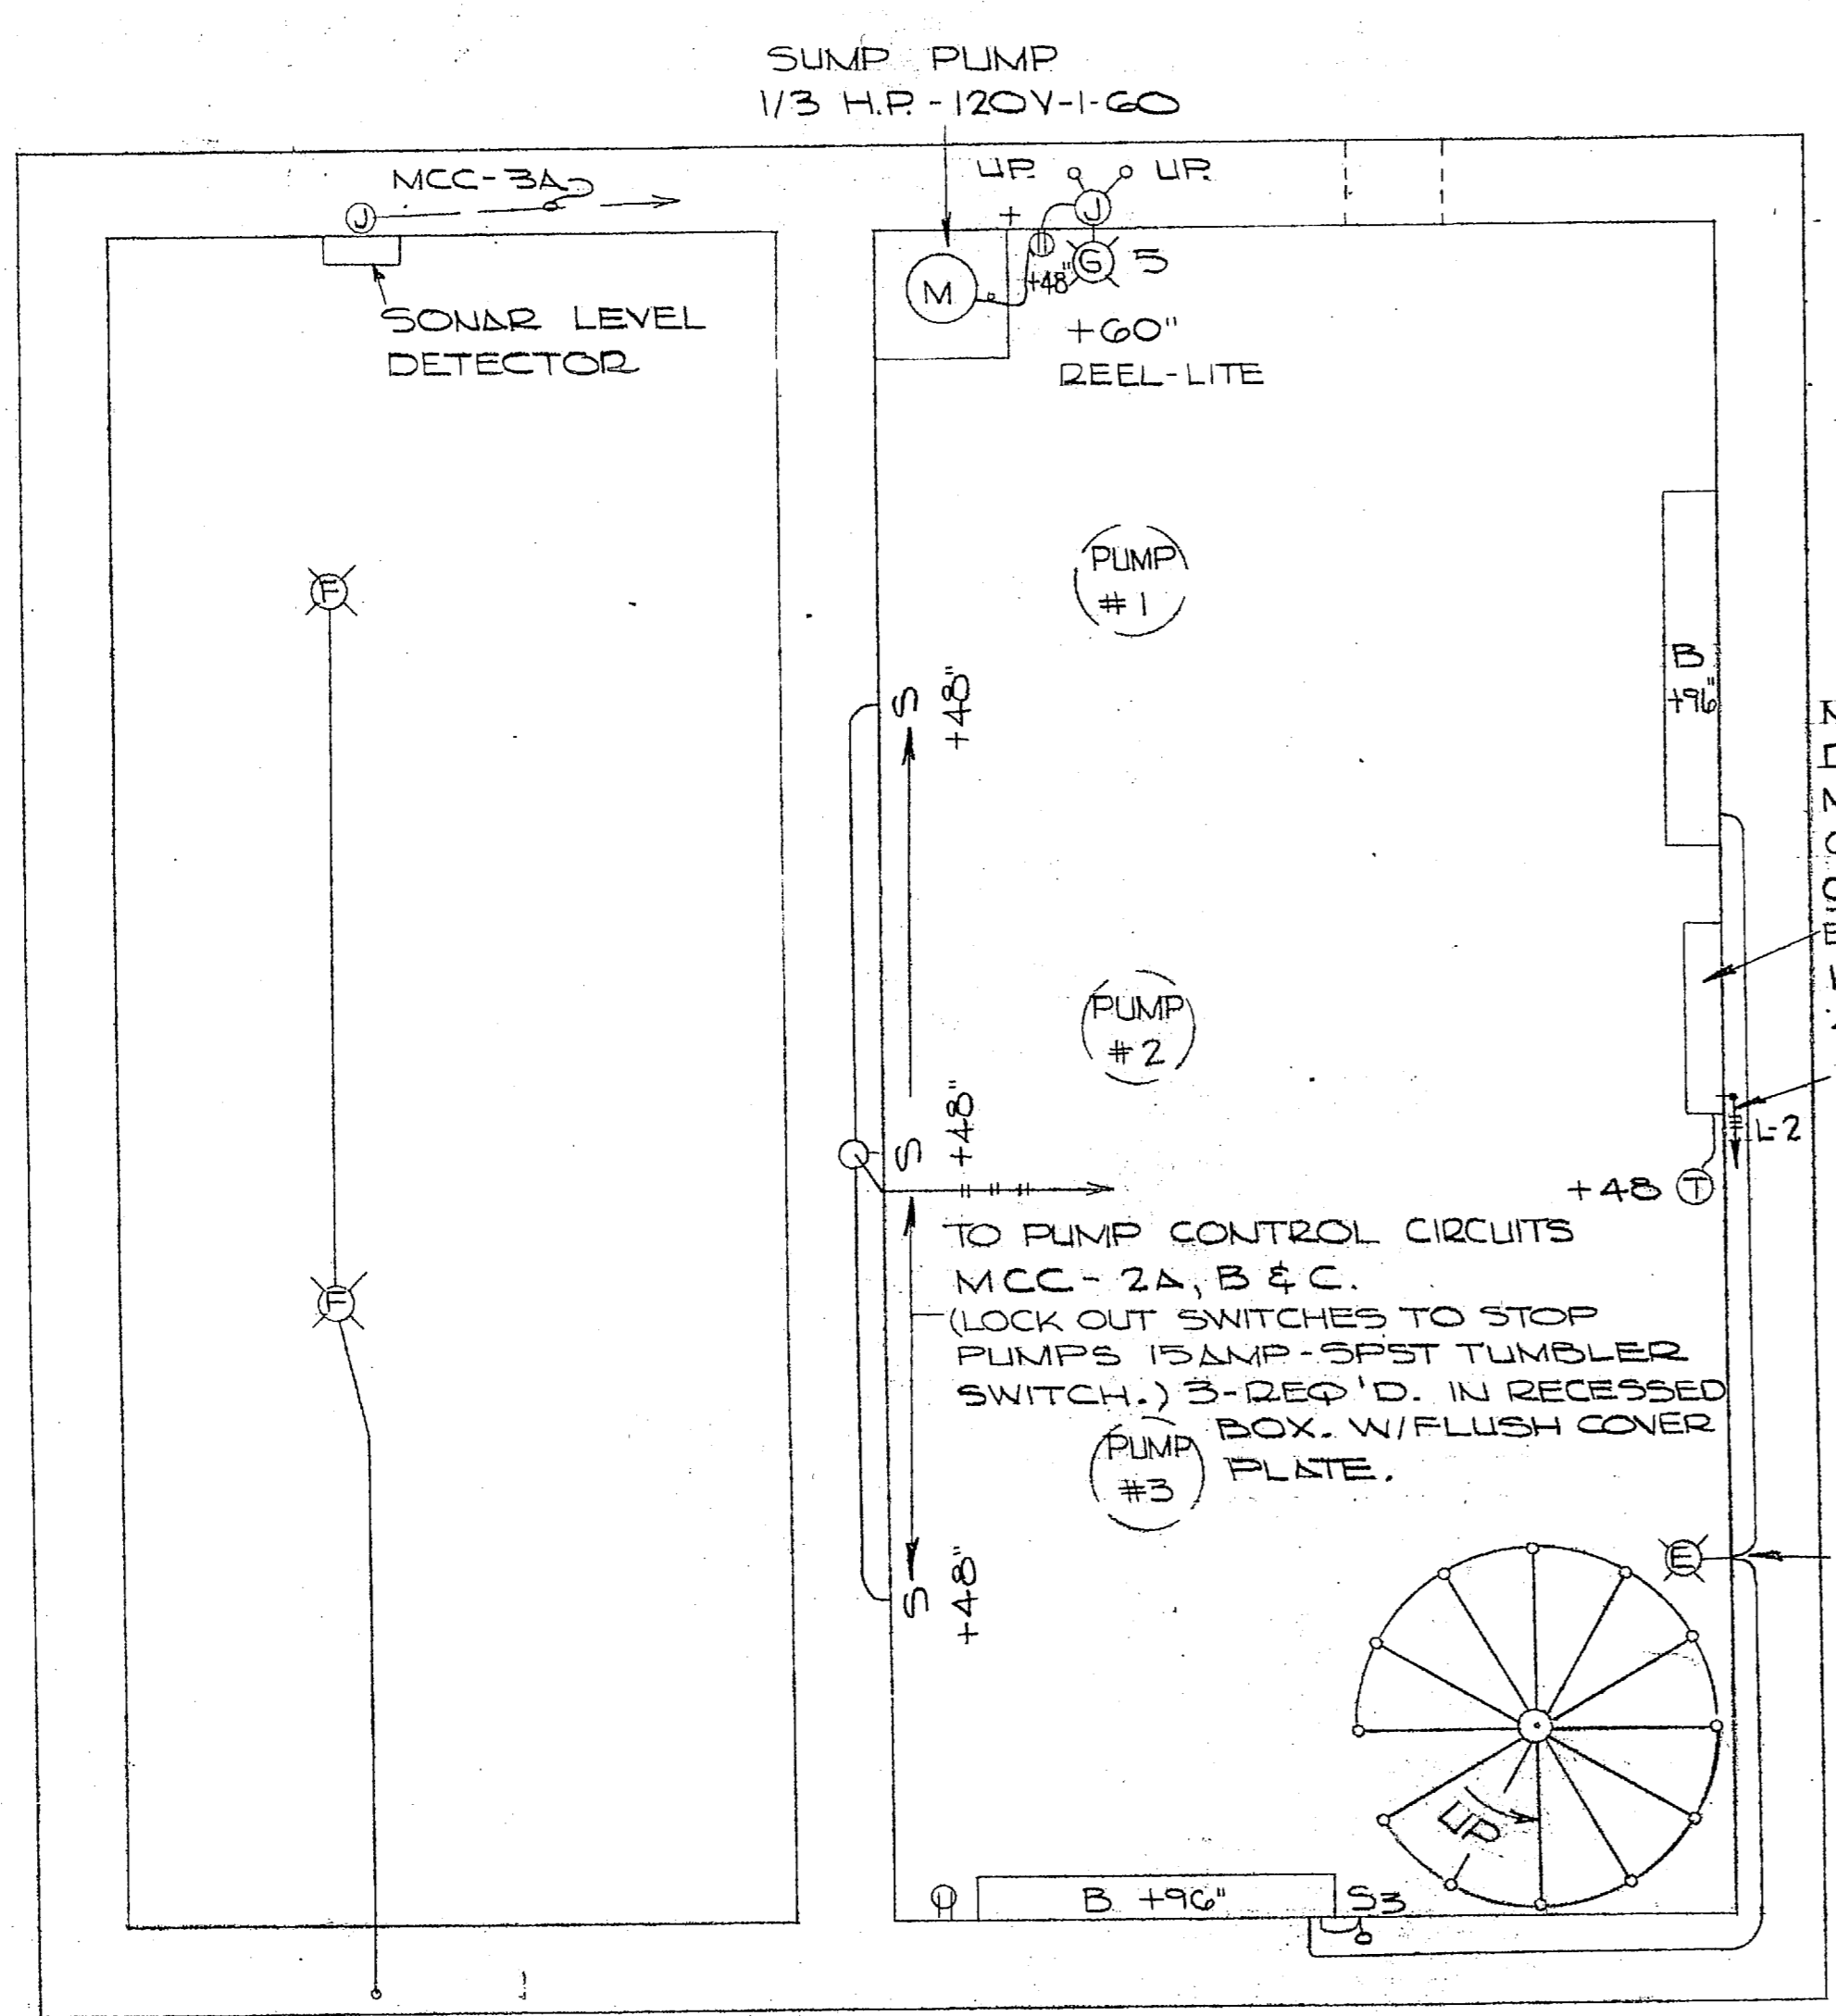 SUMP PUMP
1/3 H.P. - 120V-1-60
MCC-3A
J
UP
UP
J
SONAR LEVEL
DETECTOR
M
+48"
G
5
+60"
REEL-LITE
F
PUMP
#1
B
+96"
S
+48"
PUMP
#2
S
+48"
L-2
+48
T
TO PUMP CONTROL CIRCUITS
MCC - 2A, B & C.
(LOCK OUT SWITCHES TO STOP
PUMPS 15 AMP - SPST TUMBLER
SWITCH.) 3-REQ'D. IN RECESSED
BOX. W/FLUSH COVER
PLATE.
F
PUMP
#3
S
+48"
E
UP
B +96"
S3